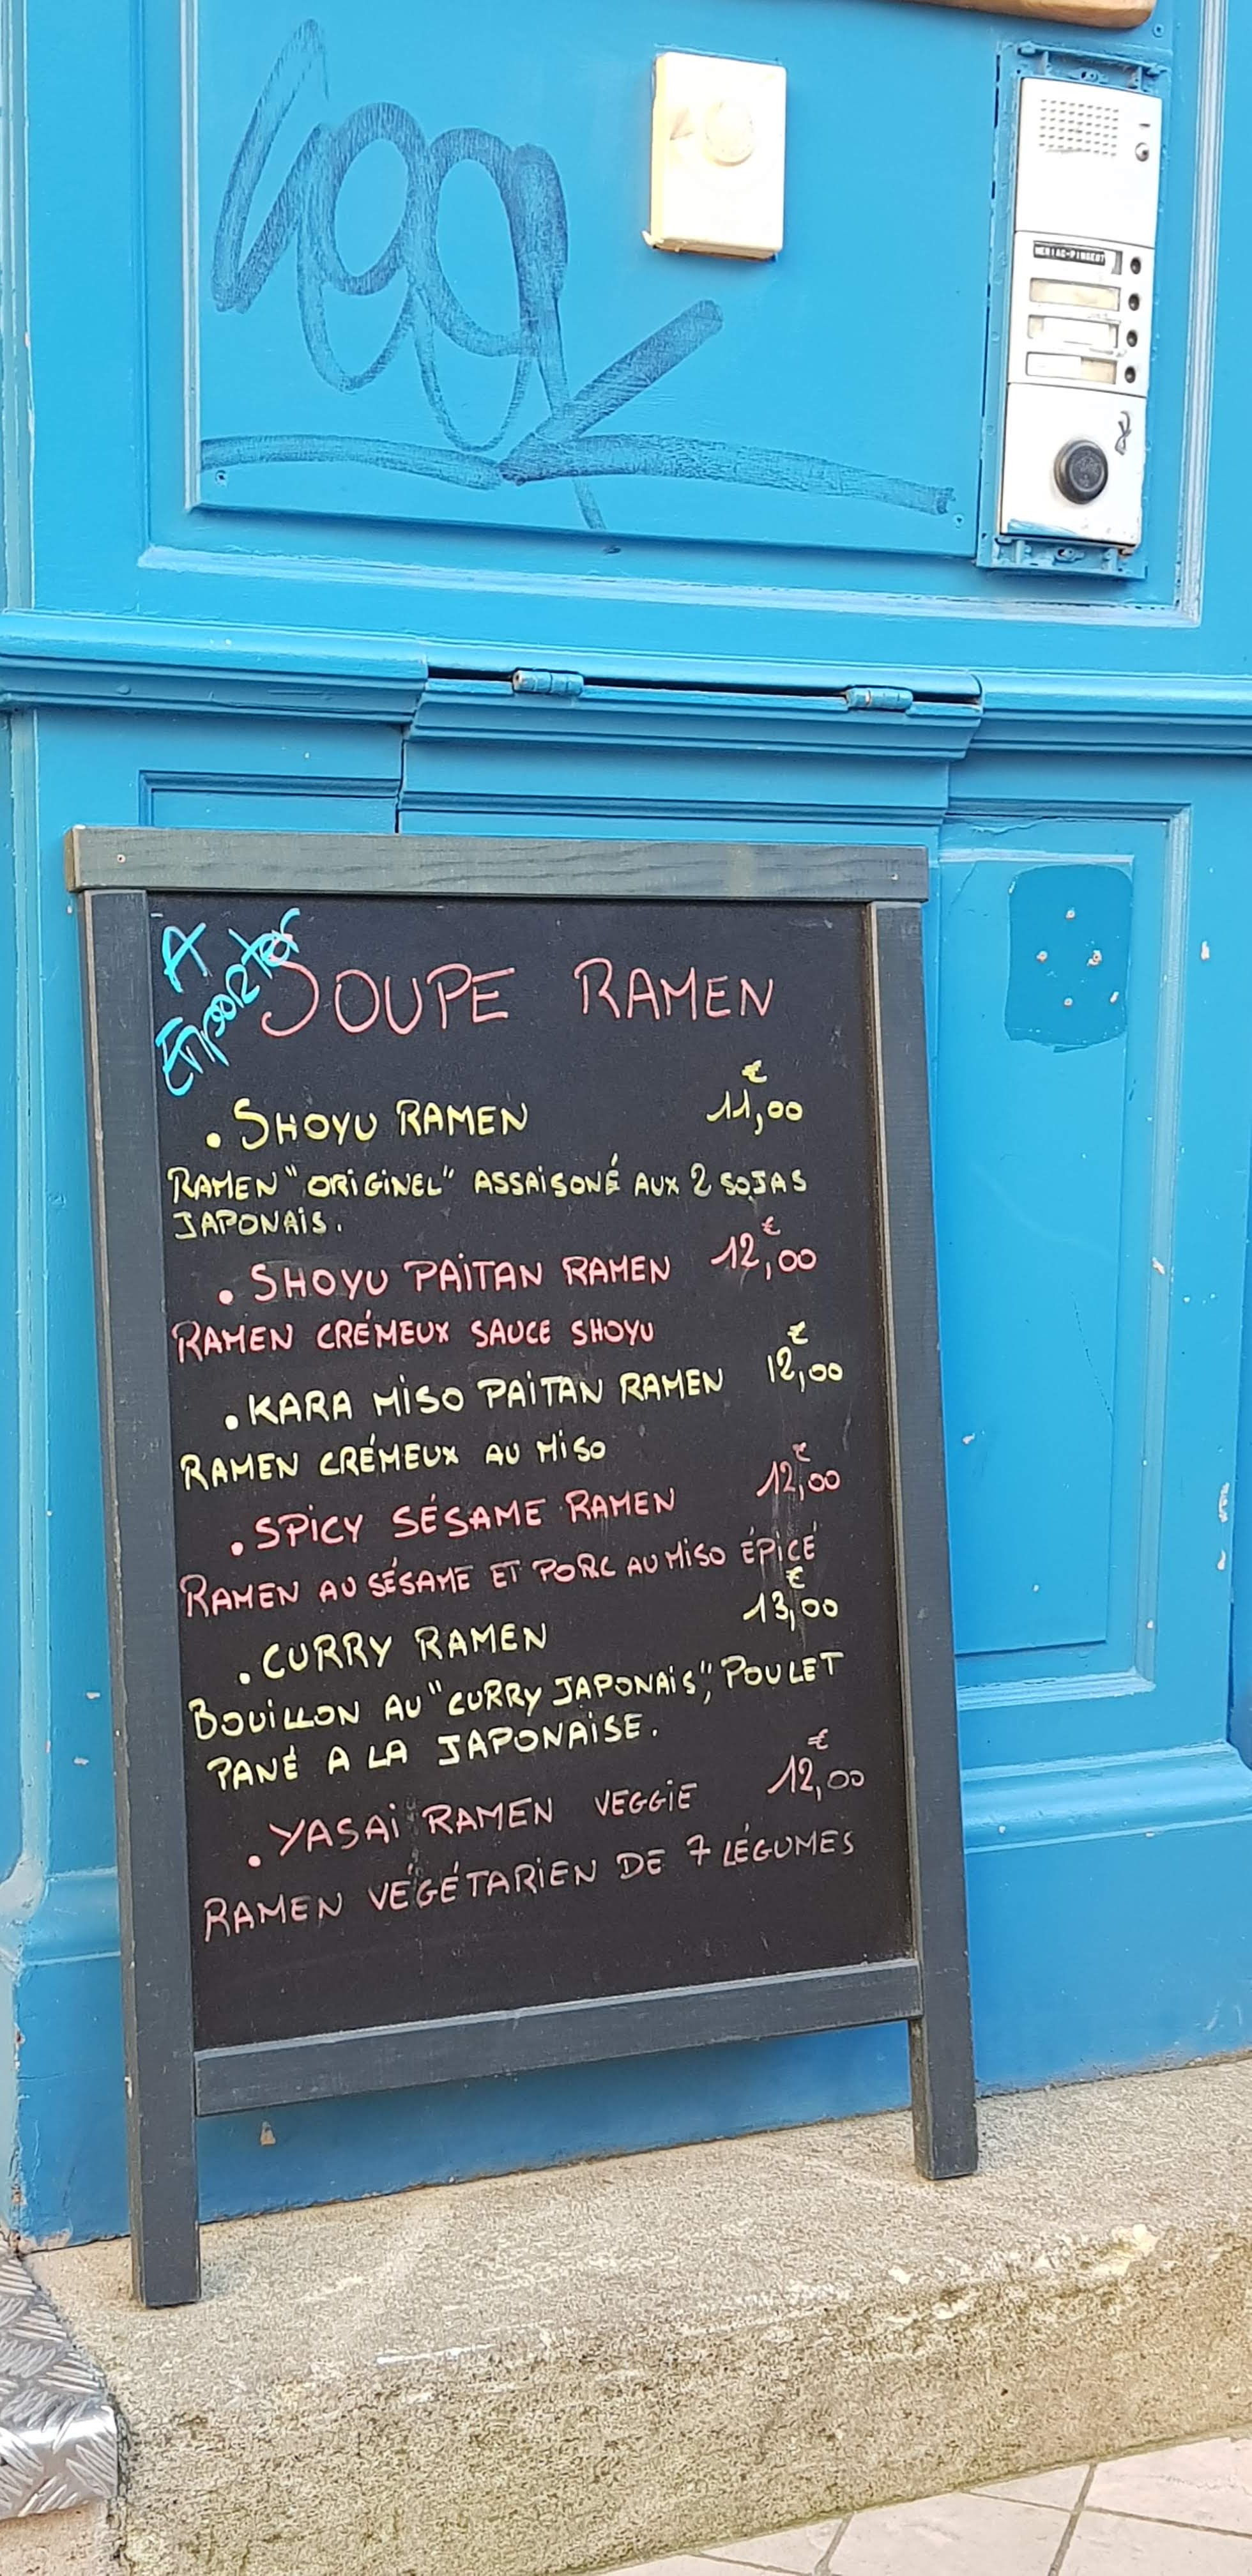 A
Emporter
SOUPE RAMEN
€
. SHOYU RAMEN 11,00
RAMEN "ORIGINEL" ASSAISONÉ AUX 2 SOJAS
JAPONAIS.
€
. SHOYU PAITAN RAMEN 12,00
RAMEN CRÉMEUX SAUCE SHOYU
€
. KARA MISO PAITAN RAMEN 12,00
RAMEN CRÉMEUX AU MISO
€
. SPICY SÉSAME RAMEN 12,00
RAMEN AU SÉSAME ET PORC AU MISO ÉPICÉ
€
. CURRY RAMEN 13,00
BOUILLON AU "CURRY JAPONAIS", POULET
PANÉ A LA JAPONAISE.
€
. YASAI RAMEN VEGGIE 12,00
RAMEN VÉGÉTARIEN DE 7 LÉGUMES